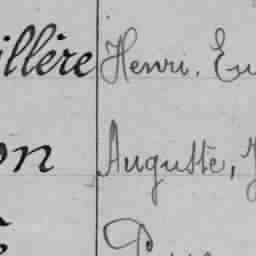 illère Henri, Eu
on Auguste,